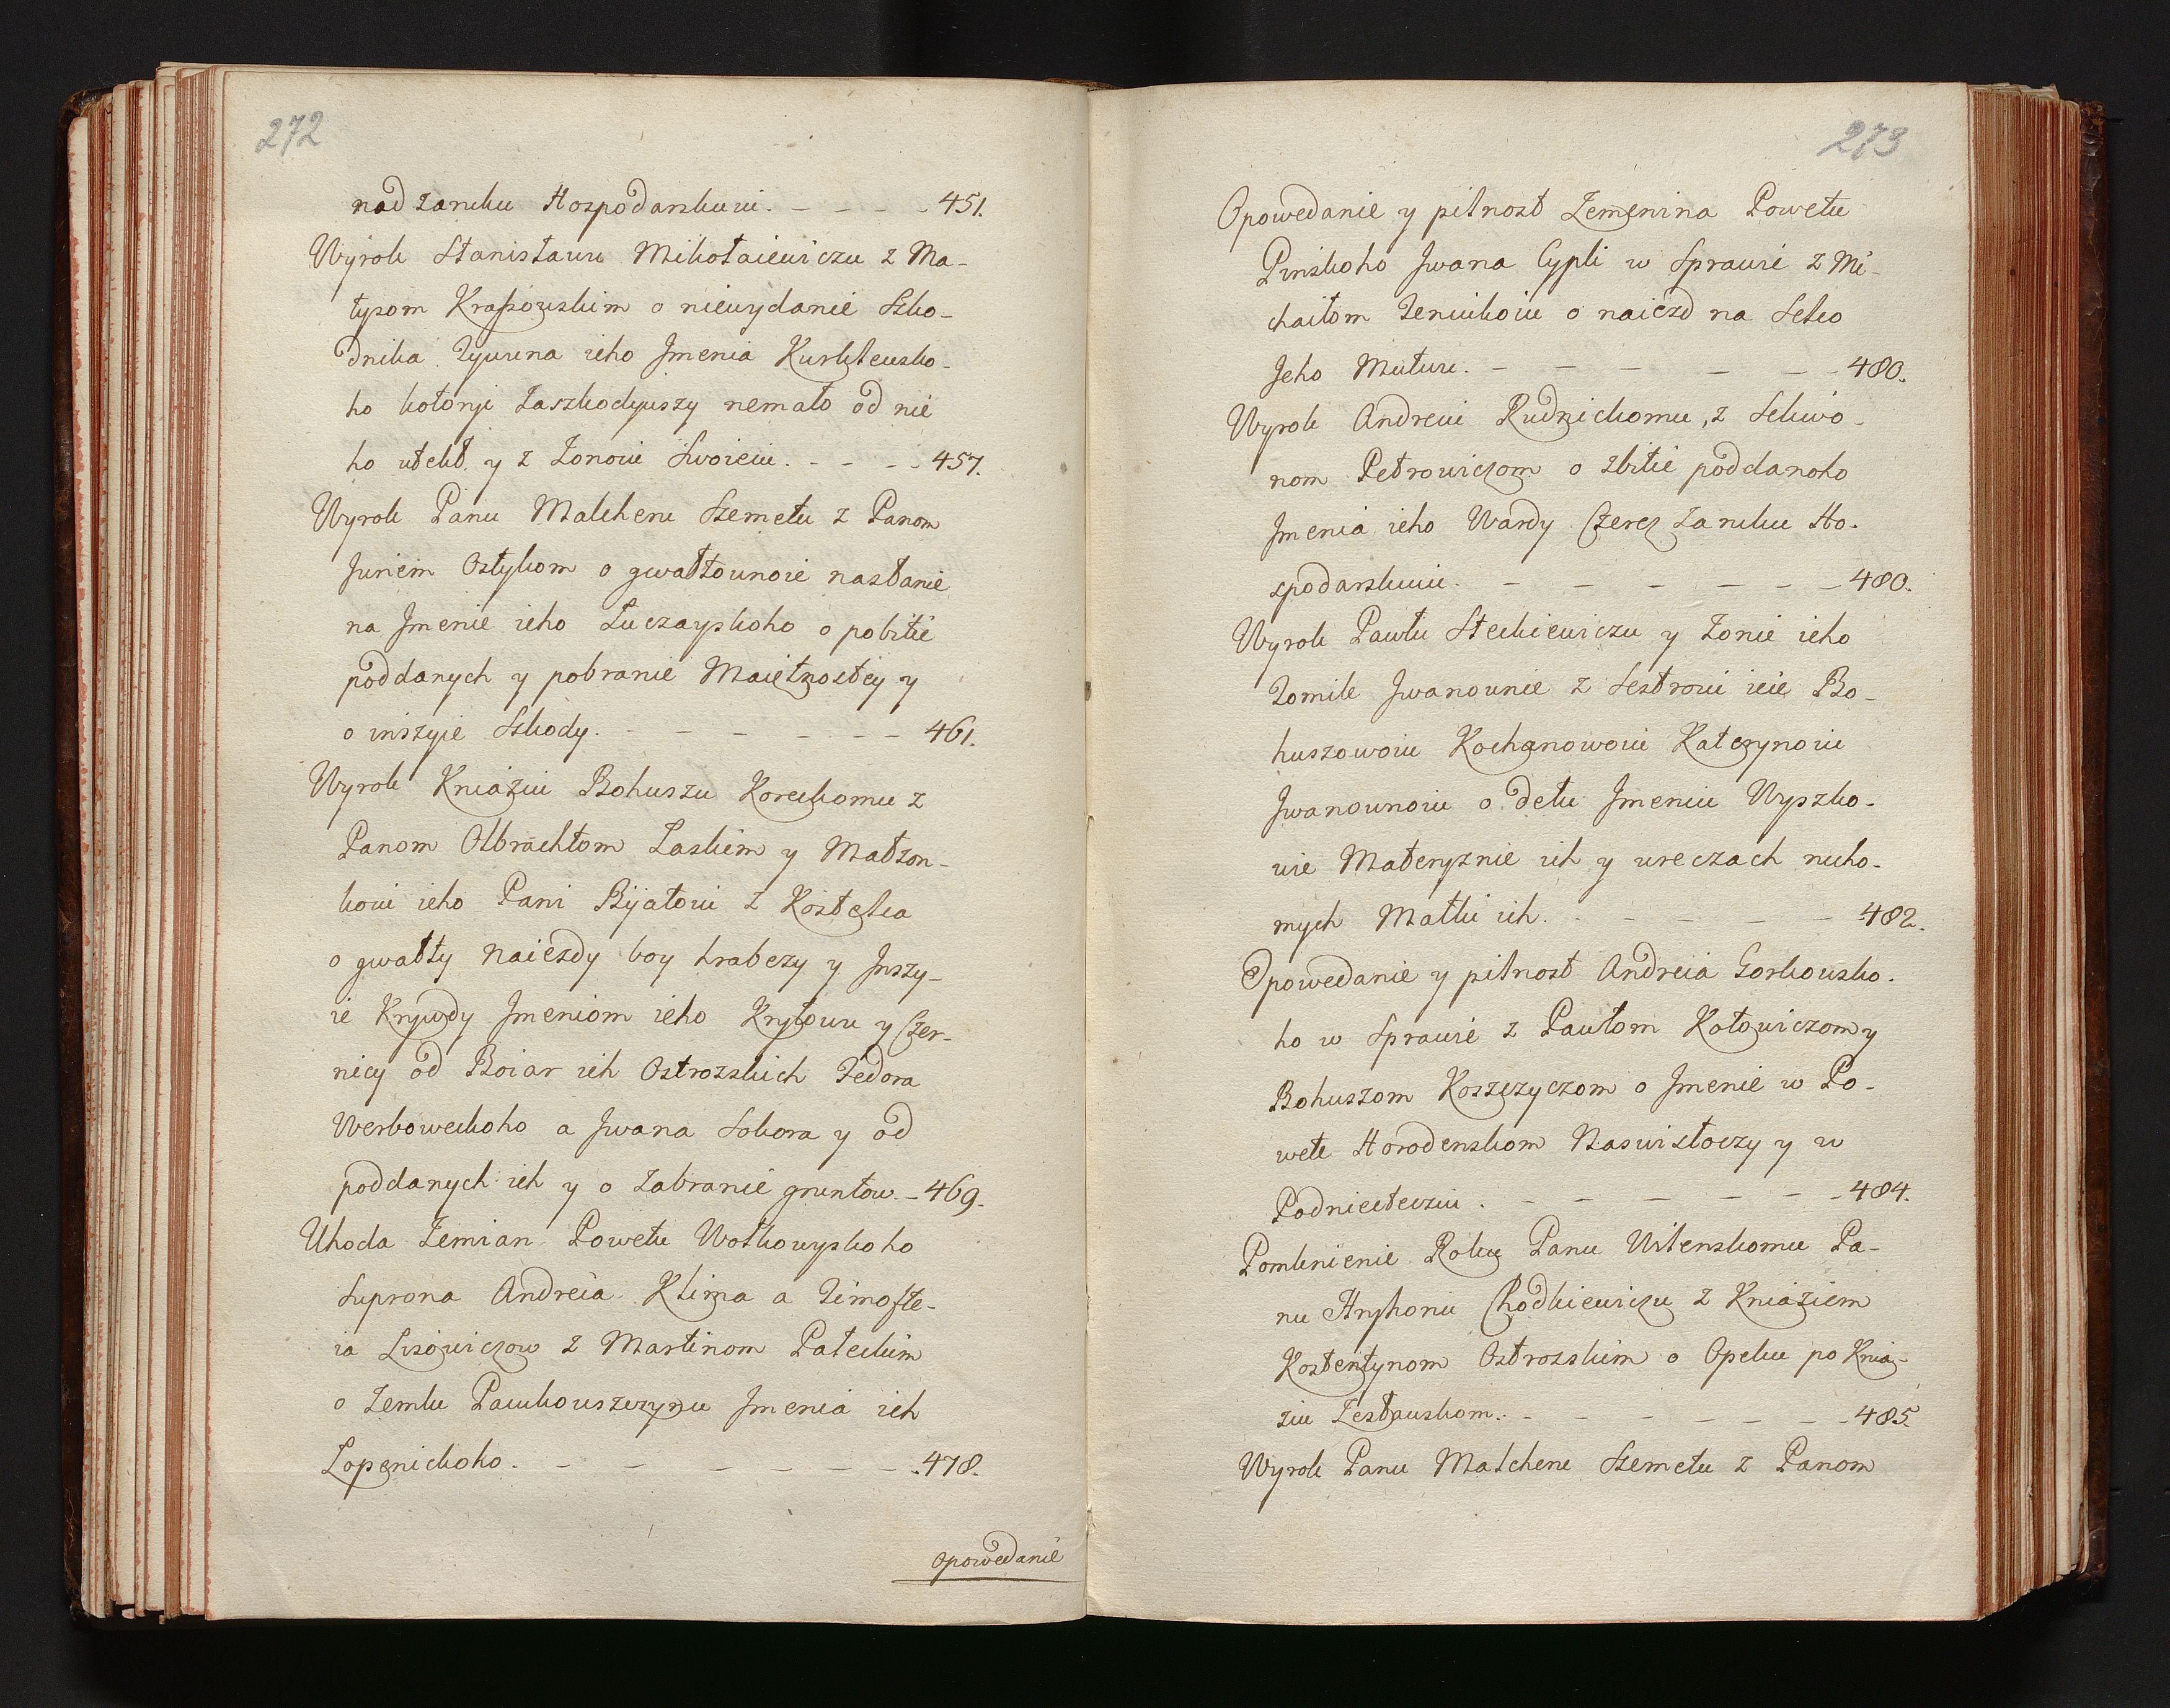 272
nad zaruku Hospodarskuiu. - - - - 451.
Wyrok Stanisławu Mikołaiewiczu z Ma-
tysom Krassowskim o niewydanie Szko-
dnika Tywuna ieho Jmenia Kurklewsko-
ho kotoryi Zaszkodywszy nemało od nie
ho utekł. y z Żonoiu Swoieiu. - - - - 457.
Wyrok Panu Malcheru Szemetu z Panom
Juriem Ostykom o gwałtownoie nasłanie
na Jmenie ieho Łuczayskoho o pobitie
poddanych y pobranie Maiętnostey y
o inszyie Szkody. - - - - - - - 461.
Wyrok Kniaziu Bohuszu Koreckomu z
Panom Olbrachtom Łaskim y Małżon-
kou ieho Pani Bijatoiu z Kostelca
o gwałty naiezdy boy hrabezy y Jnszy-
ie Krywdy Jmeniom ieho Kryłowu y Czer-
nicy od Boiar ich Ostrożskich Fedora
Werboweckoho a Jwana Sokora y od
poddanych ich y o Zabranie gruntow. - 469.
Uhoda Zemian Powetu Wołkowyskoho
Suprona Andreia Klima a Timofte-
ia Lisowiczow z Martinom Pateckim
o Zemlu Pawkowszczyznu Jmenia ich
Łopenickoho. - - - - - - 478.
Opowedanie
273
Opowedanie y pilnost Zemenina Powetu
Pinskoho Jwana Cypli w Sprawie z Mi-
chaiłom Teniukoiu o naiezd na Selco
Jeho Mutwu. - - - - - - 480.
Wyrok Andreiu Rudnickomu, z Seliwo-
nom Petrowiczom o zbitie poddanoho
Jmenia ieho Wardy Czerez Zaruku Ho-
spodarskuiu. - - - - - - 480.
Wyrok Pawłu Steckiewiczu y Żonie ieho
Tomile Jwanownie z Sestroiu ieie Bo-
huszowoiu Kochanowoiu Katerynoiu
Jwanownoiu o dełu Jmeniu Wyszko-
wie Materyznie ich y w reczach rucho-
mych Matki ich. - - - - - 482.
Opowedanie y pilnost Andreia Gorkowsko.
ho w Sprawie z Pawłom Kotowiczom y
Bohuszom Koszczyczom o Jmenie w Po-
wete Horodenskom Naswisłoczy y w
Podnieteczin. - - - - - - 484.
Pomknienie Roku Panu Wilenskomu Pa-
nu Hryhoriu Chodkiewiczu z Kniaziem
Kostentynom Ostrozskim o Opeku po Knia-
ziu Zesławskom. - - - - - - - 485.
Wyrok Panu Malcheru Szemetu z Panom